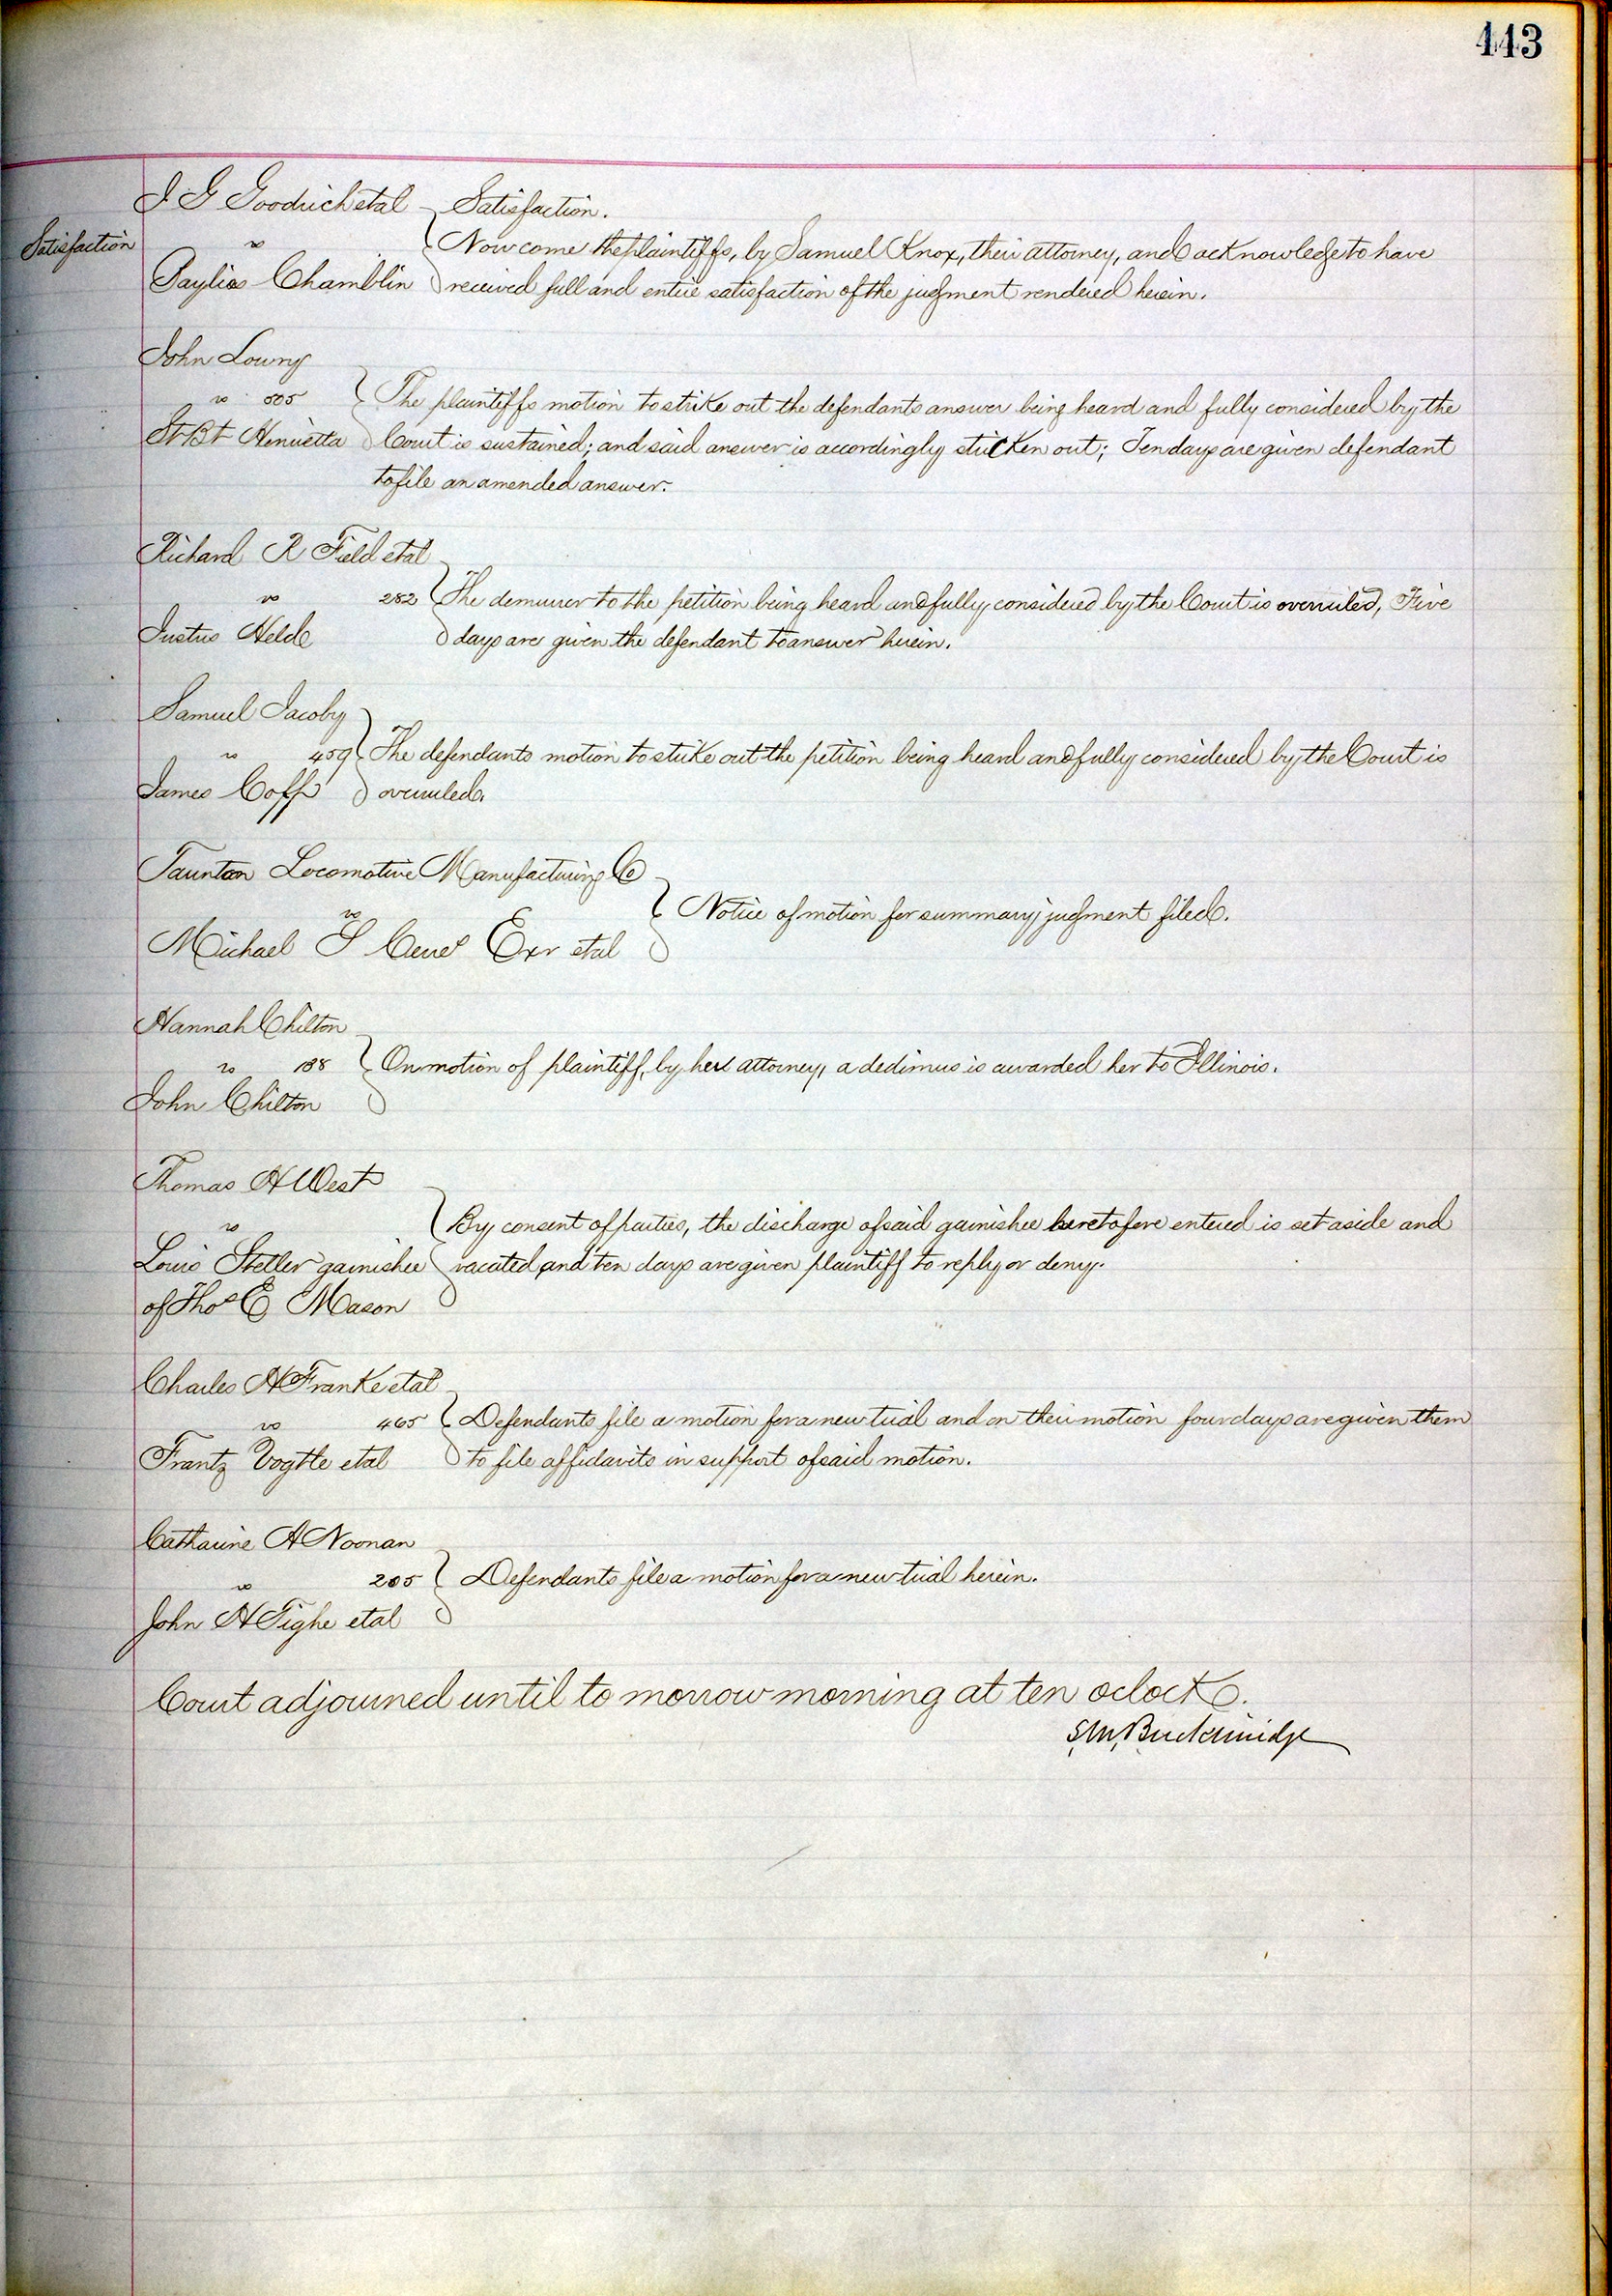 443
J G Goodrich et al Satisfaction.
Satisfaction vs Now come the plaintiffs, by Samuel Knox, their attorney, and acknowledge to have
Baylies Chamblin received full and entire satisfaction of the judgment rendered herein.
John Lowry
vs 505 The plaintiffs motion to strike out the defendants answer being heard and fully considered by the
St Bt Henrietta Court is sustained; and said answer is accordingly stricken out; Ten days are given defendant
to file an amended answer.
Richard R Field et al
vs 282 The demurrer to the petition being heard and fully considered by the Court is overruled, Five
Justus Helde days are given the defendant to answer herein.
Samuel Jacoby
vs 459 The defendants motion to strike out the petition being heard and fully considered by the Court is
James Goff overruled.
Taunton Locomotive Manufacturing Co
vs Notice of motion for summary judgment filed.
Michael S Exr et al
Hannah Chilton
vs 188 On motion of plaintiff, by her attorney, a dedimus is awarded her to Illinois.
John Chilton
Thomas H West
vs By consent of parties, the discharge of said garnishee heretofore entered is set aside and
Louis Steller garnishee vacated, and ten days are given plaintiff to reply or deny.
of Thos E Mason
Charles H Franke et al
vs 465 Defendants file a motion for a new trial and on their motion four days are given them
Frantz Vogtle et al to file affidavits in support of said motion.
Catharine A Noonan
vs 205 Defendants file a motion for a new trial herein.
John H Tighe et al
Court adjourned until to morrow morning at ten oclock.
S.M. Breckinridge